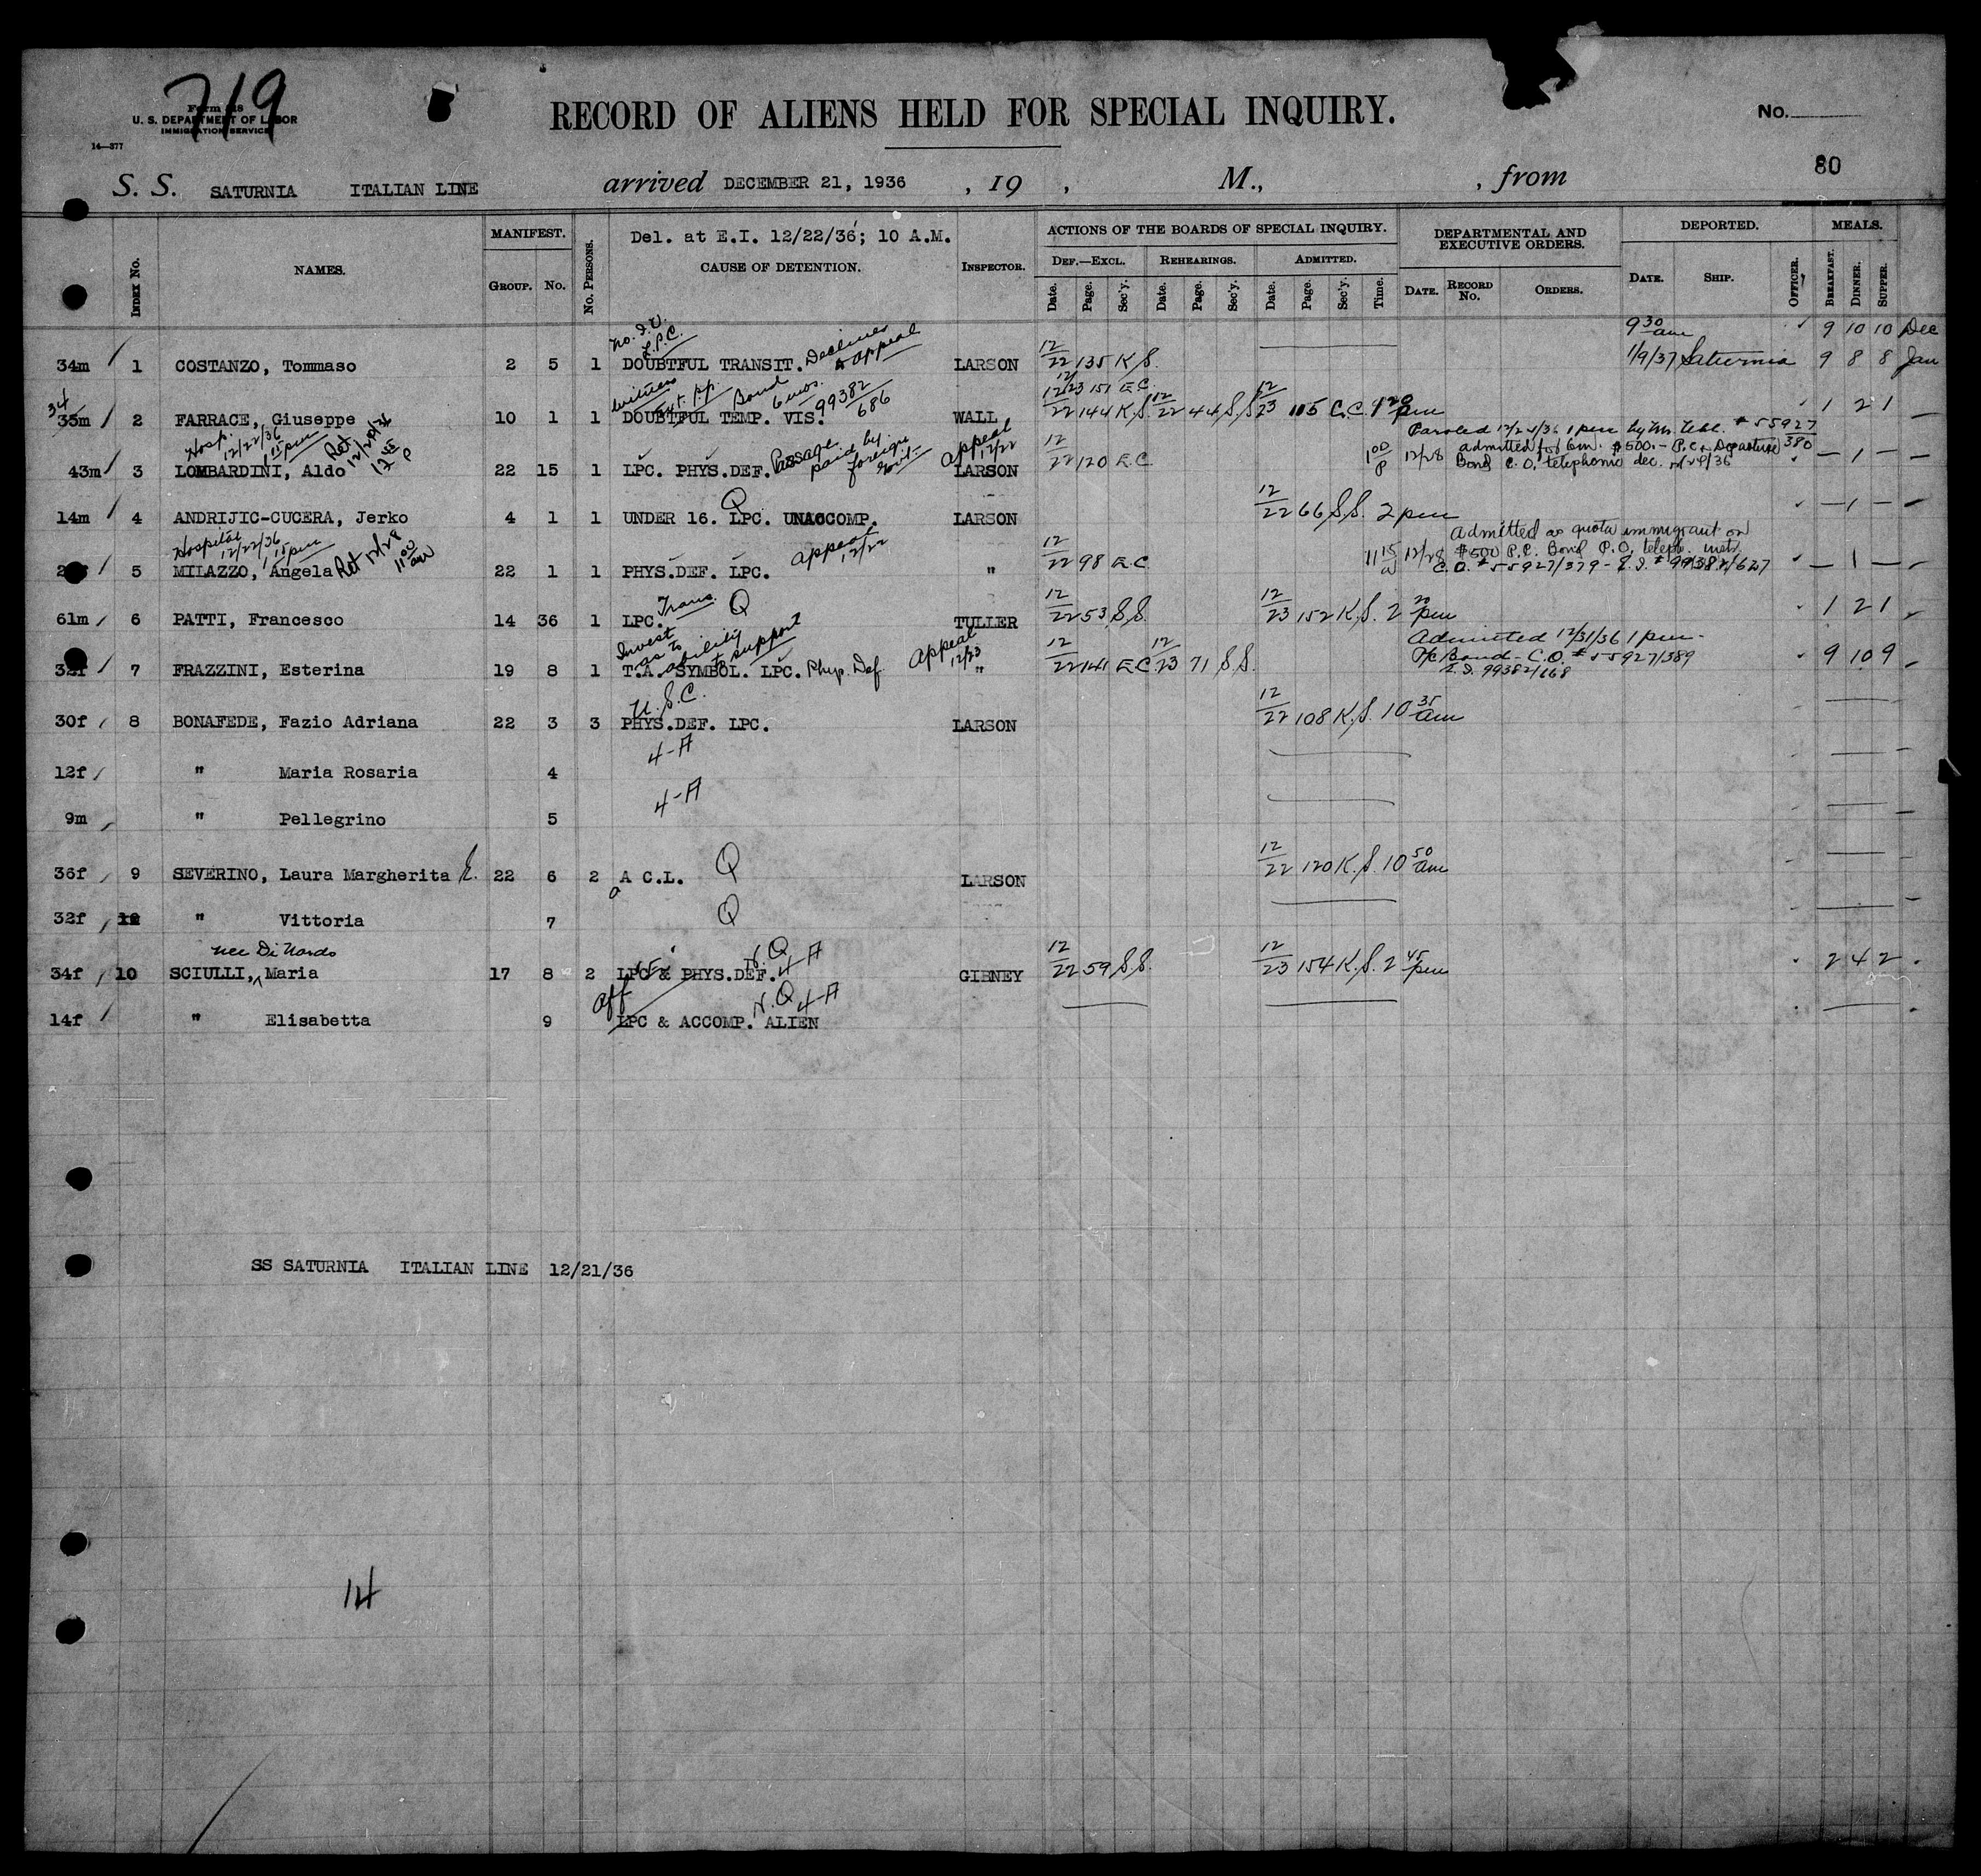 719
Form 518
U. S. DEPARTMENT OF LABOR
IMMIGRATION SERVICE
14—377
RECORD OF ALIENS HELD FOR SPECIAL INQUIRY.
No.
80
S. S. SATURNIA ITALIAN LINE arrived DECEMBER 21, 1936 , 19 , M., , from
INDEX No. NAMES. MANIFEST. GROUP. No. No. PERSONS. Del. at E.I. 12/22/36; 10 A.M. CAUSE OF DETENTION. INSPECTOR.
ACTIONS OF THE BOARDS OF SPECIAL INQUIRY. DEF.—EXCL. Date. Page. Sec'y. REHEARINGS. Date. Page. Sec'y. ADMITTED. Date. Page. Sec'y. Time.
DEPARTMENTAL AND EXECUTIVE ORDERS. DATE. RECORD No. ORDERS. DEPORTED. DATE. SHIP. OFFICER. MEALS. BREAKFAST. DINNER. SUPPER.
no. I.V. L.P.C. Declines appeal 9 30 am 9 10 10 Dec
34m 1 COSTANZO, Tommaso 2 5 1 DOUBTFUL TRANSIT. LARSON 12/22 135 K.S. 1/9/37 Saturnia 9 8 8 Jan
witness Bond 6 mos. 99382/686 12/23 151 E.C.
34 35m 2 FARRACE, Giuseppe 10 1 1 DOUBTFUL TEMP. VIS. WALL 12/22 144 K.S. 12/22 44 S.S. 12/23 115 C.C. 1 20 pm 1 2 1
Hosp. 12/22/36 1 15 pm Ret Passage paid by foreign Govt- appeal 12/22 Paroled 12/24/36 1 pm #55927/380
43m 3 LOMBARDINI, Aldo 22 15 1 LPC. PHYS.DEF. LARSON 12/22 120 E.C. 1 00 P 12/28 admitted for 6 m. $500.- P.C. & Departure Bond C.O. telephonic dec. — 1 —
14m 4 ANDRIJIC-CUCERA, Jerko 4 1 1 UNDER 16. LPC. UNACCOMP. Q LARSON 12/22 66 S.S. 2 pm — 1 —
Hospital 12/22/36 1 15 pm Ret 12/28 11 00 am appeal 12/22 admitted as quota immigrant on
5 MILAZZO, Angela 22 1 1 PHYS.DEF. LPC. " 12/22 98 E.C. 11 15 a 12/28 $500 P.C. Bond C.O. #55927/379 - E.I. #99382/627 — 1 —
61m 6 PATTI, Francesco 14 36 1 LPC. Trans. Q TULLER 12/22 53 S.S. 12/23 152 K.S. 2 20 pm 1 2 1
Invest as to ability to support Appeal 12/23 Admitted 12/31/36 1 pm-
32f 7 FRAZZINI, Esterina 19 8 1 T.A. SYMBOL. LPC. Phys. Def " 12/22 141 E.C. 12/23 71 S.S. P/C Bond - C.O. #55927/389 E.I. 99382/668 9 10 9
U.S.C.
30f 8 BONAFEDE, Fazio Adriana 22 3 3 PHYS.DEF. LPC. LARSON 12/22 108 K.S. 10 35 am
12f " Maria Rosaria 4 4-A
9m " Pellegrino 5 4-A
36f 9 SEVERINO, Laura Margherita 22 6 2 A C.L. Q LARSON 12/22 120 K.S. 10 50 am
32f 10 " Vittoria 7 Q
nee Di Nardo
34f 10 SCIULLI, Maria 17 8 2 LPC & PHYS.DEF. N.Q 4-A GIBNEY 12/22 59 S.S. 12/23 154 K.S. 2 45 pm 2 4 2
14f " Elisabetta 9 aff LPC & ACCOMP. ALIEN N.Q 4-A
SS SATURNIA ITALIAN LINE 12/21/36
14